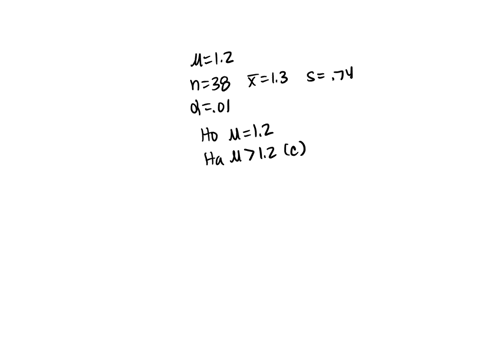 μ=1.2
n=38 x̄=1.3 s=.74
α=.01
Ho μ=1.2
Ha μ>1.2 (c)